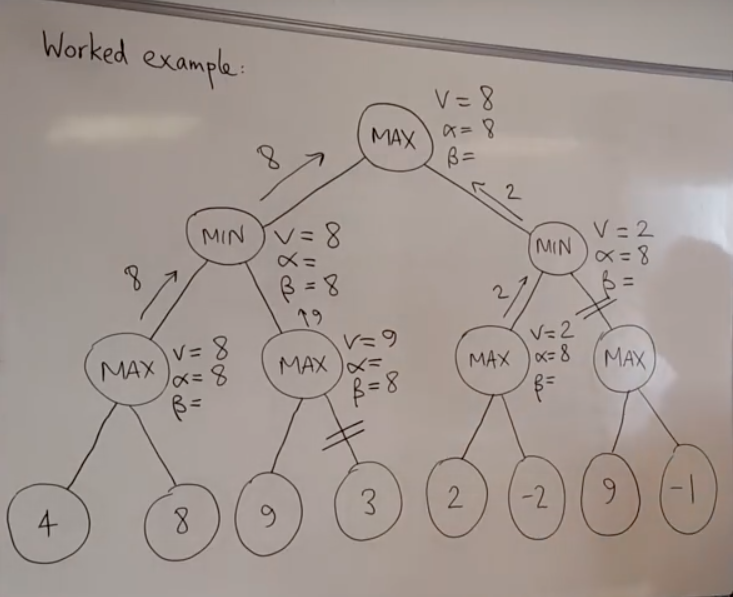 Worked example:
V = 8
MAX
α = 8
β =
8
2
MIN
V = 8
α =
β = 8
MIN
V = 2
α = 8
β =
8
9
2
MAX
V = 8
α = 8
β =
MAX
V = 9
α =
β = 8
MAX
V = 2
α = 8
β =
MAX
4
8
9
3
2
-2
9
-1